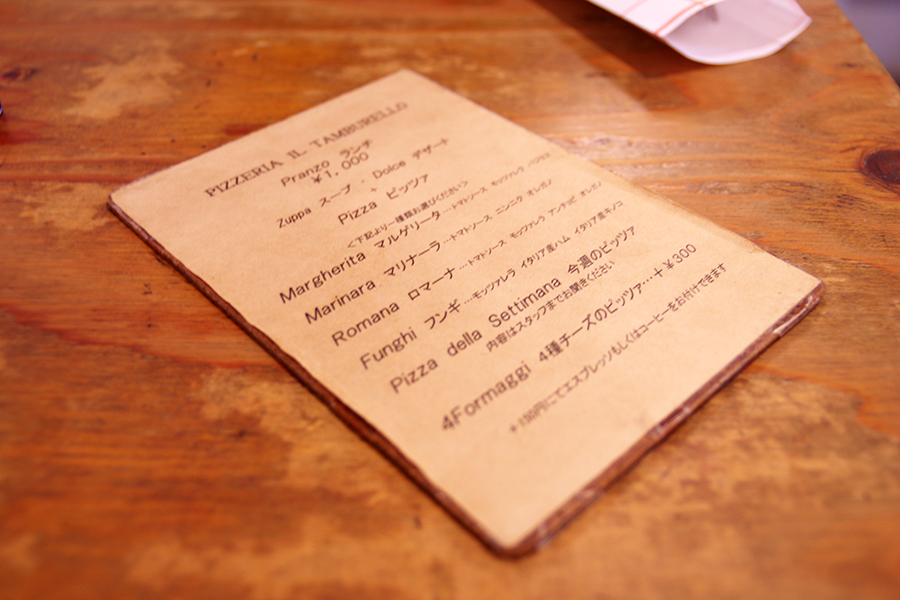 PIZZERIA IL TAMBURELLO
Pranzo ランチ
¥1,000
Zuppa スープ ・ Dolce デザート
+
Pizza ピッツァ
<下記より一種類お選びください>
Margherita マルゲリータ…トマトソース モッツァレラ バジリコ
Marinara マリナーラ…トマトソース ニンニク オレガノ
Romana ロマーナ…トマトソース モッツァレラ アンチョビ オレガノ
Funghi フンギ…モッツァレラ イタリア産ハム イタリア産キノコ
Pizza della Settimana 今週のピッツァ
内容はスタッフまでお聞きください
4Formaggi 4種チーズのピッツァ…+¥300
にてエスプレッソもしくはコーヒーをお付けできます